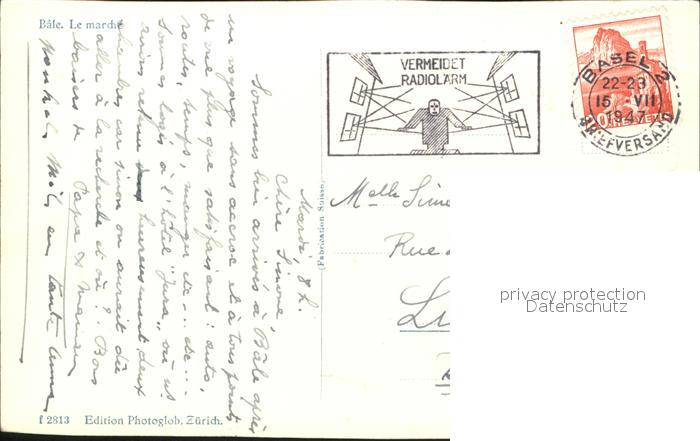 Bâle. Le marché
VERMEIDET
RADIOLÄRM
BASEL 2
22-23
15 VII
1947
BRIEFVERSAND
HELVETIA
Mardi, 8 h.
Chère Simone,
Sommes bien arrivés à Bâle après
un voyage sans accroc et à tous points
de vue plus que satisfaisant : auto,
routes, temps, manger etc... etc...
Sommes logés à l'hôtel "Jura" où ns
avions retenu heureusement deux
chambres car sinon on aurait dû
aller à la recherche et où? Bons
baisers de Papa & Maman
Tante Anna
(Fabrication Suisse)
Melle Simo
Rue
privacy protection
Datenschutz
f 2813 Edition Photoglob, Zürich.